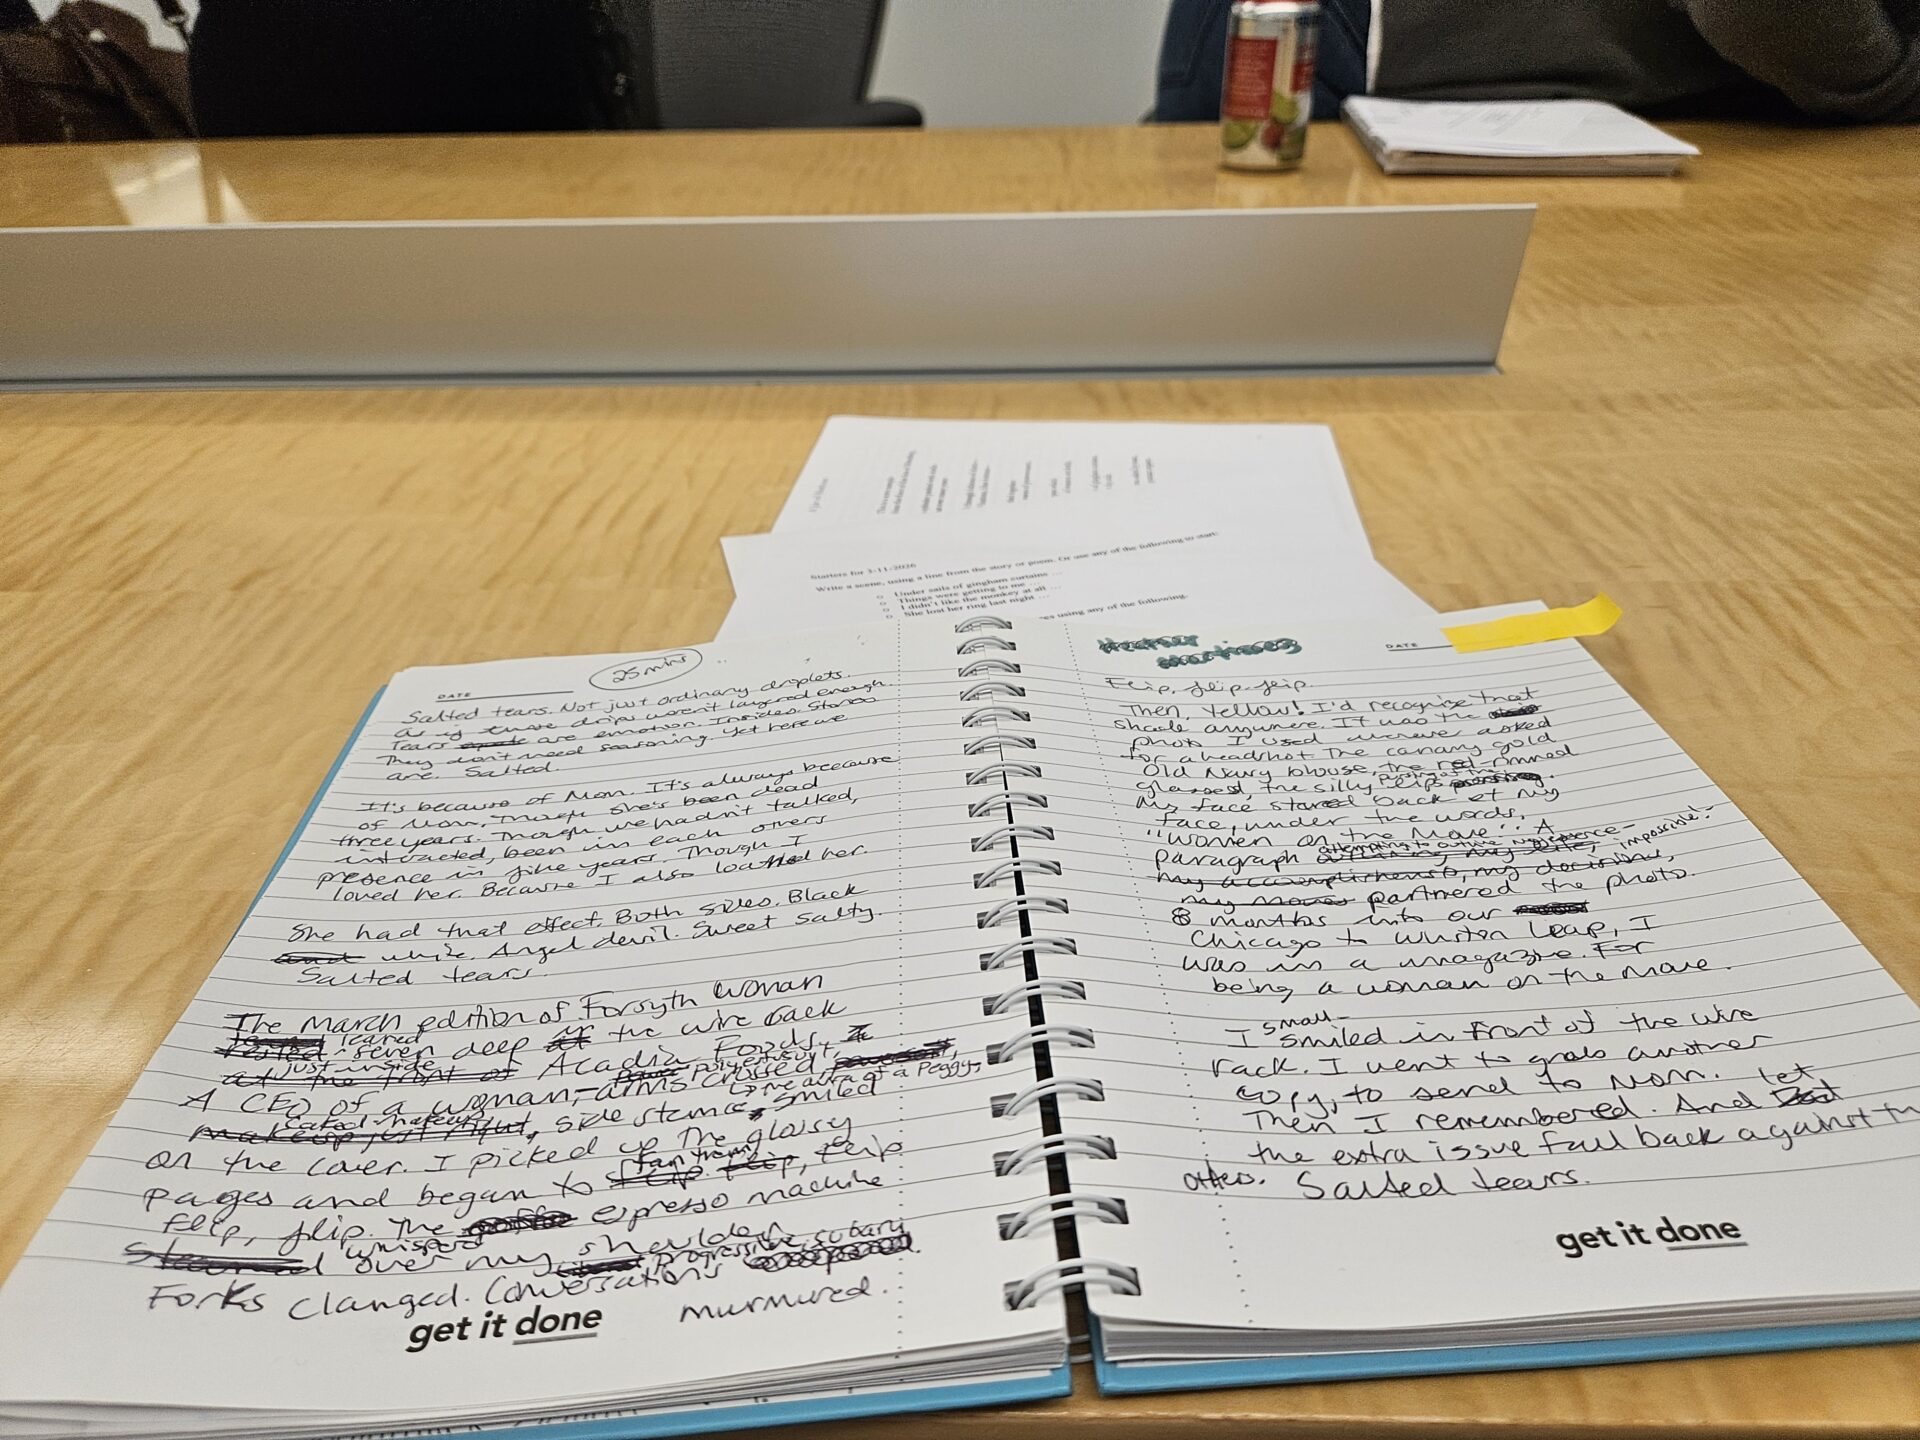 Starters for 3-11-2026
Write a scene, using a line from the story or poem. Or use any of the following to start:
Under sails of gingham curtains ...
Things were getting to me ...
I didn't like the monkey at all ...
She lost her ring last night ...
using any of the following.
25 mins
DATE
Salted tears. Not just ordinary droplets.
as if those drips weren't layered enough.
Tears are emotion. Insides. Stories
They don't need seasoning. Yet here we
are. Salted.
It's because of Mom. It's always because
of Mom, though she's been dead
three years. Though we hadn't talked,
interacted, been in each others
presence in five years. Though I
loved her. Because I also loathed her.
She had that effect. Both sides. Black
and white. Angel devil. Sweet salty.
Salted tears.
The March edition of Forsyth Woman
leaned
rested seven deep at the wire rack
just inside
at the front of Acadia Foods.
A CEO of a woman, arms crossed, polyester suit,
the aura of a Peggy,
caked makeup
makeup just right, side stance, smiled
on the cover. I picked up the glossy
fan them
pages and began to flip. flip, flip
flip, flip. The coffee espresso machine
whispered
steamed over my shoulder
progressive, urban
Forks clanged. Conversations
murmured.
get it done
Heather
Martinez
DATE
Flip, flip, flip.
Then, Yellow! I'd recognize that
shade anywhere. It was the
photo I used whenever asked
for a headshot. The canary gold
Old Navy blouse, the red-rimmed
glasses, the silly pursing of the lips.
My face stared back at my
face, under the words,
"Women on the Move". A
attempting to outline my existence - impossible -
paragraph outlining my life,
my accomplishments, my decisions,
my moves partnered the photo.
8 months into our
Chicago to Winston leap, I
was in a magazine. For
being a woman on the move.
small-
I smiled in front of the wire
rack. I went to grab another
copy, to send to Mom.
Then I remembered. And let
the extra issue fall back against the
others. Salted tears.
get it done